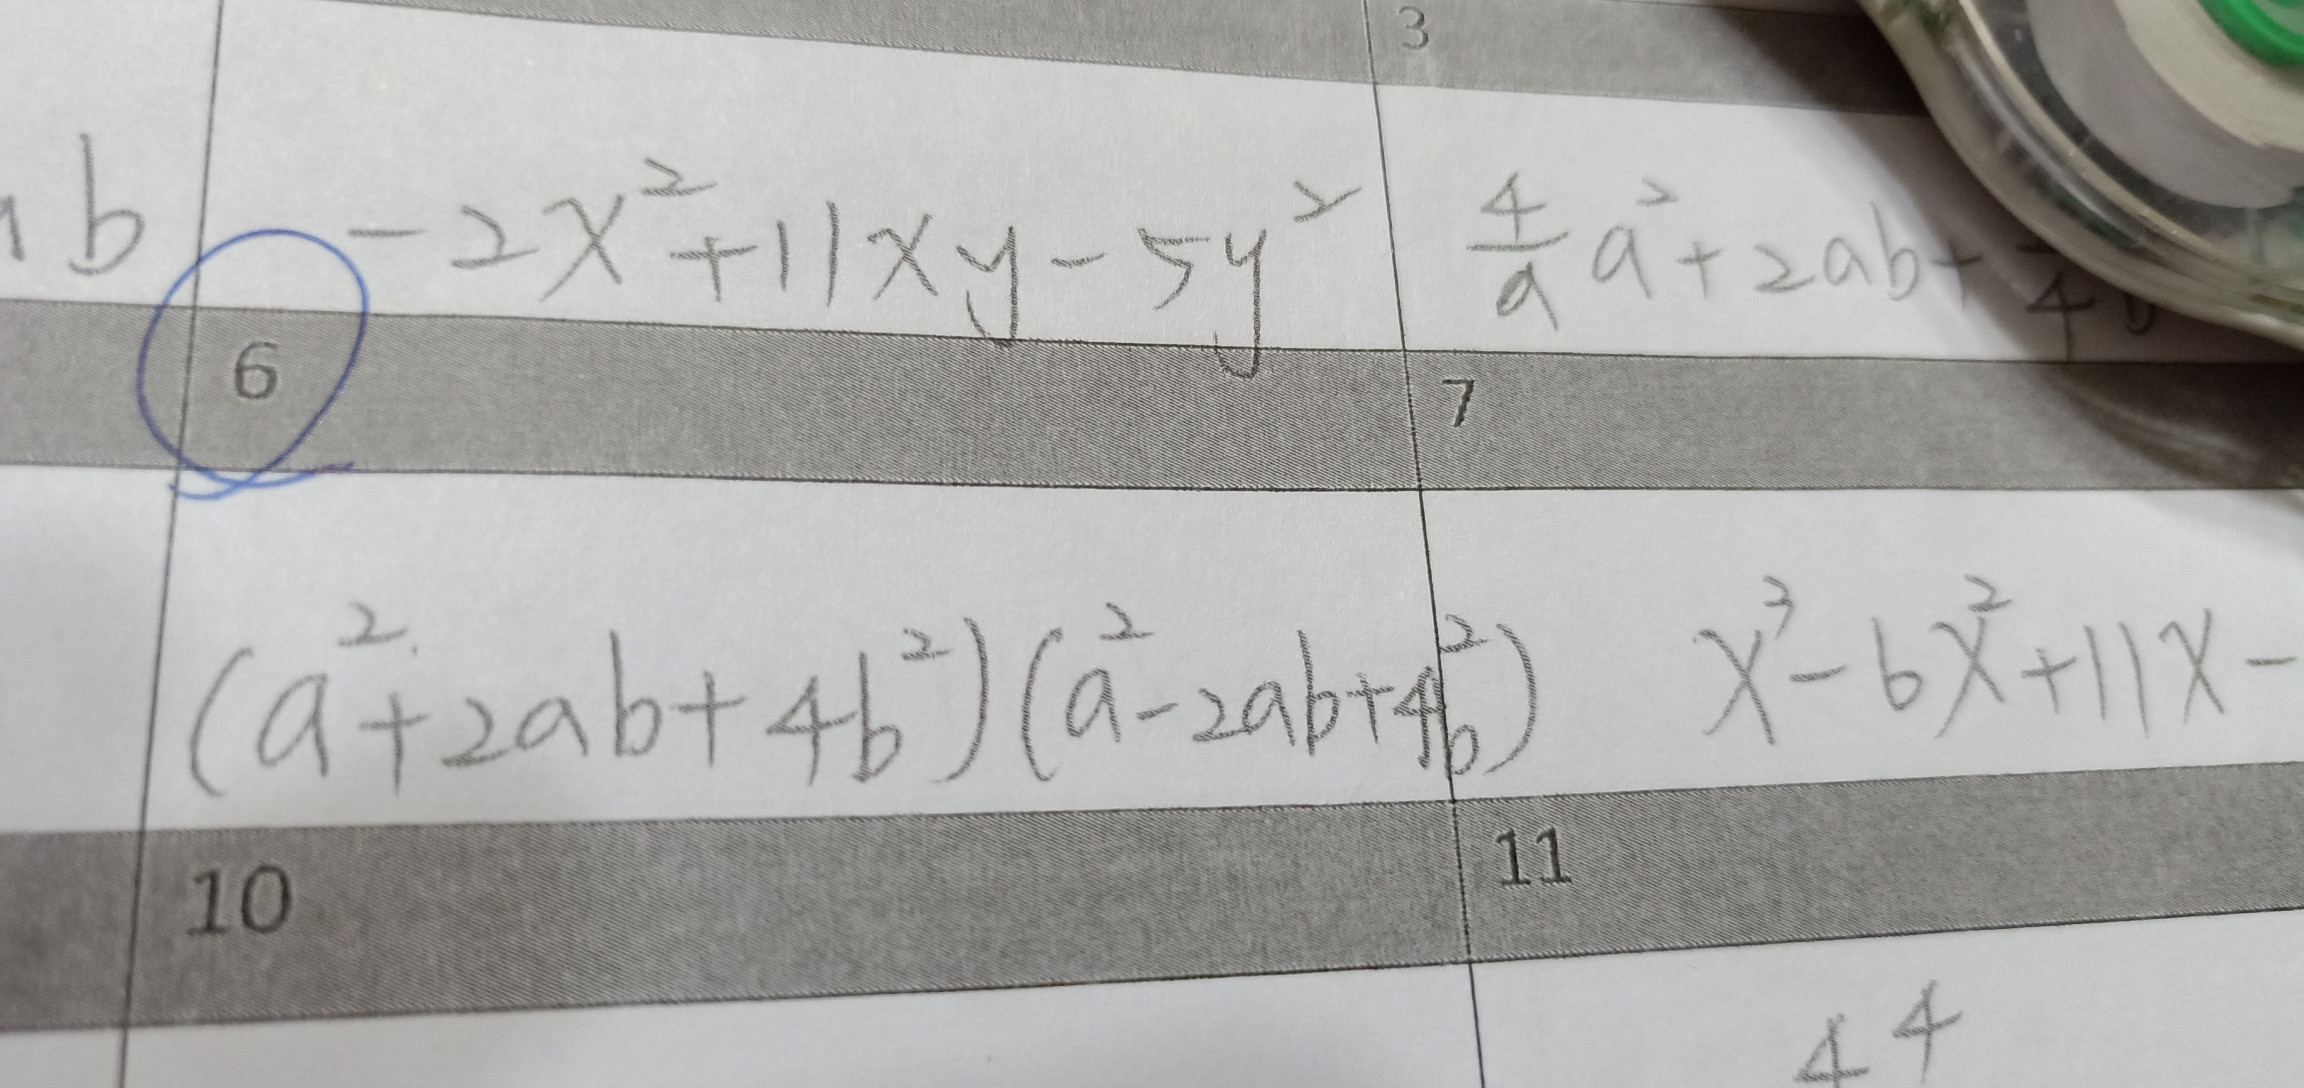 3
ab -2x²+11xy-5y² 4/9 a²+2ab+
6 7
(a²+2ab+4b²)(a²-2ab+4b²) x³-6x²+11x-
10 11
4 4